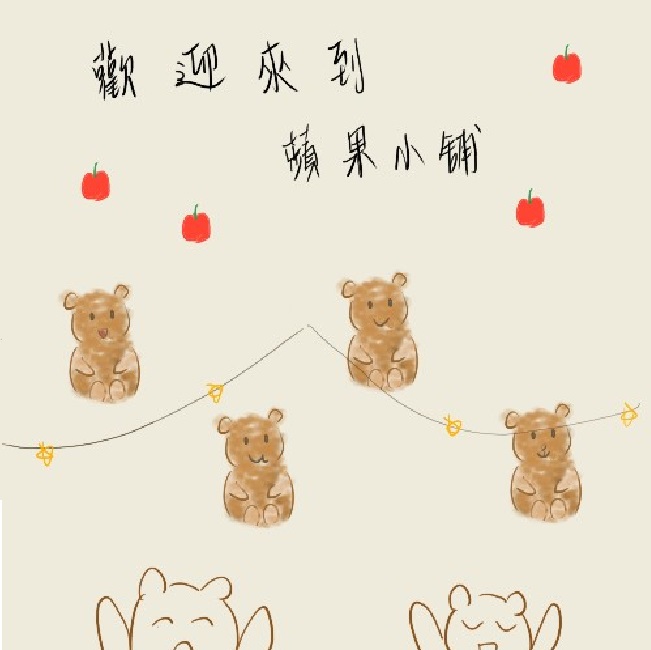 歡迎來到
蘋果小舖